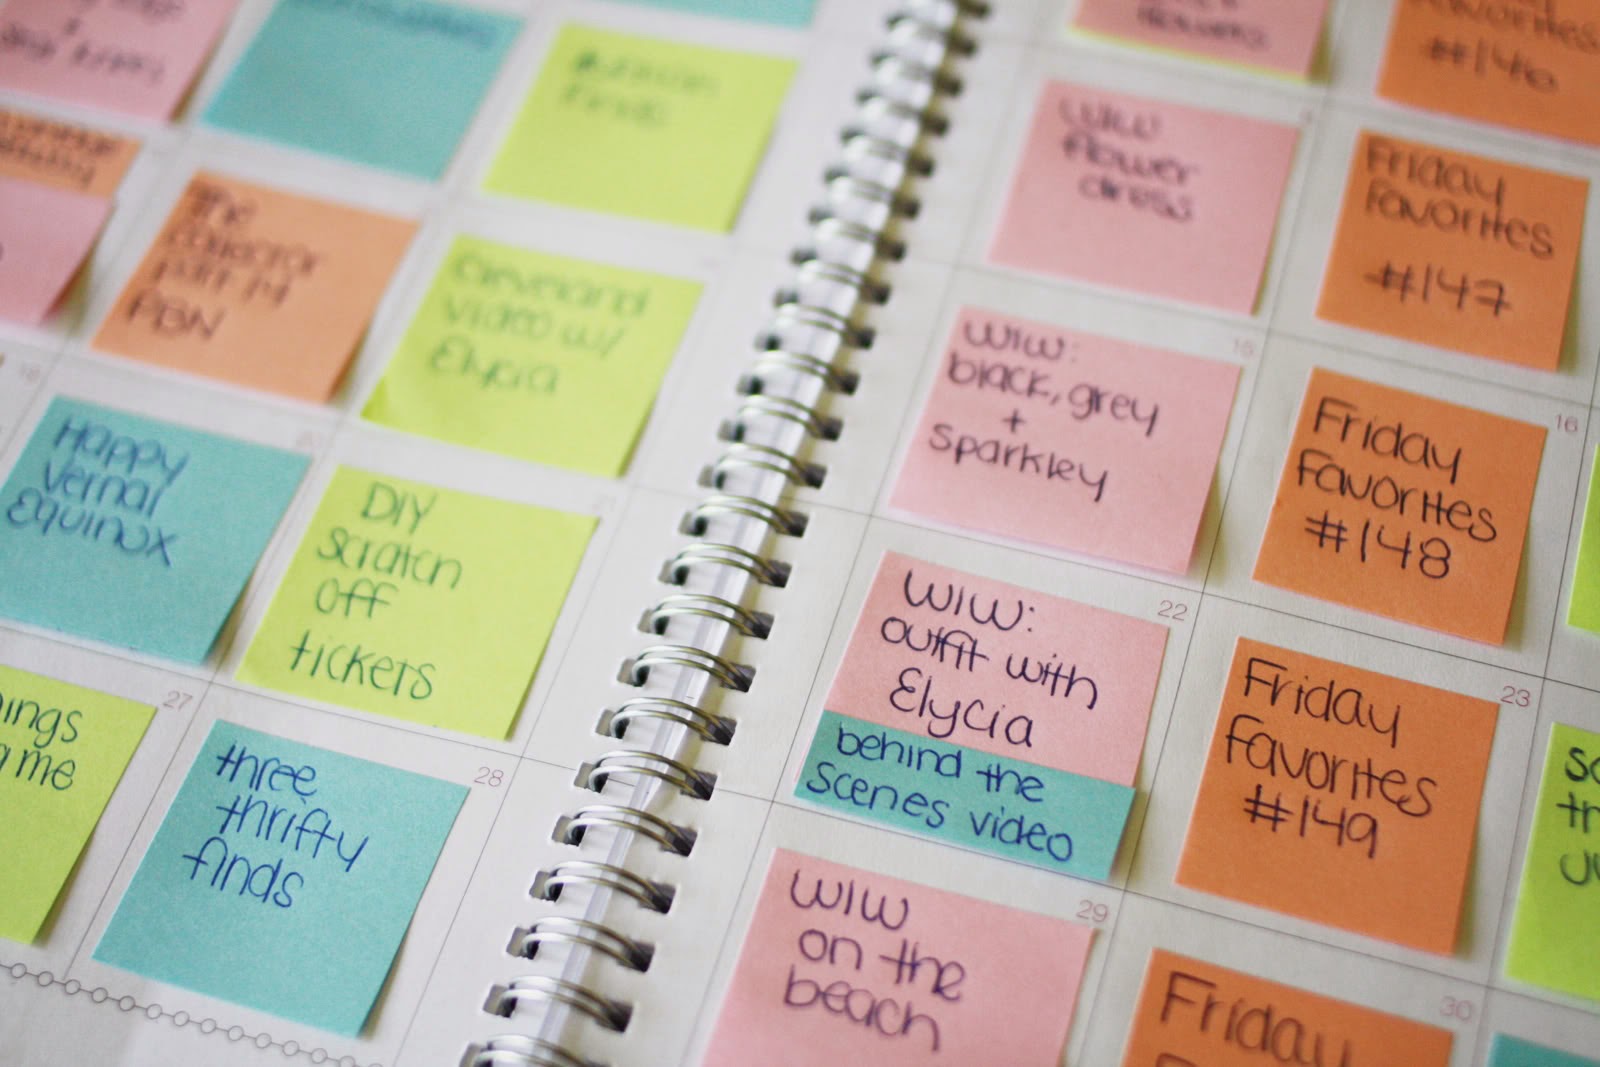 #146
WIW
flower
dress
Friday
Favorites
#147
The
collector
part 14
PBN
Cleveland
video w/
Elycia
15
WIW:
black, grey
+
sparkley
16
Friday
Favorites
#148
Happy
Vernal
Equinox
DIY
scratch
off
tickets
22
WIW:
outfit with
Elycia
behind the
scenes video
23
Friday
Favorites
#149
27
ings
me
28
three
thrifty
finds
29
WIW
on the
beach
30
Friday